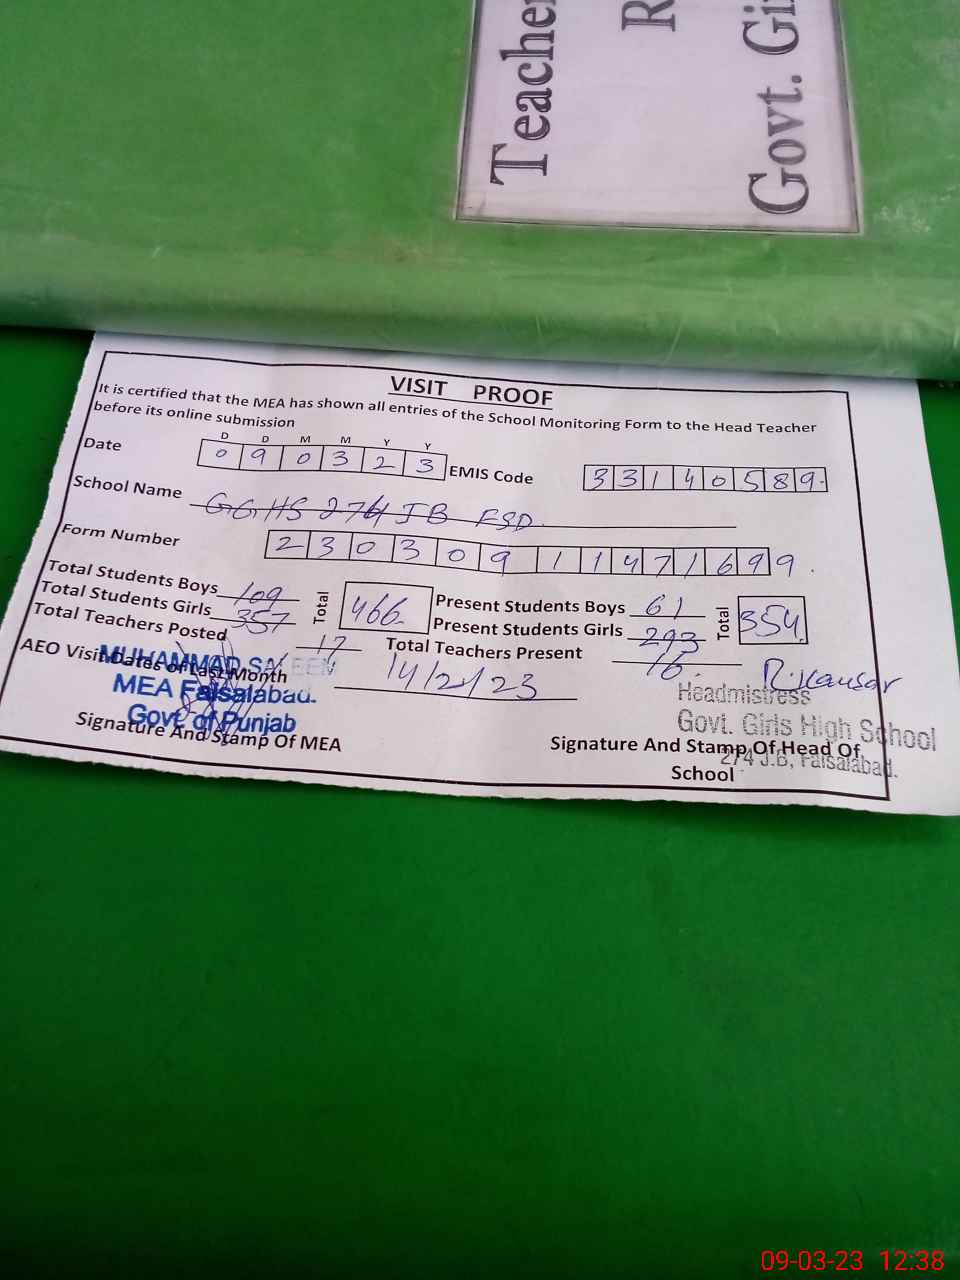 Teacher
R
Govt. Gi
VISIT PROOF
It is certified that the MEA has shown all entries of the School Monitoring Form to the Head Teacher
before its online submission
D D M M Y Y
Date 0 9 0 3 2 3 EMIS Code 3 3 1 4 0 5 8 9
School Name G.G.HS 274 JB FSD
Form Number 2 3 0 3 0 9 1 1 4 7 1 6 9 9
Total Students Boys 109
Total Students Girls 357
Total 466
Present Students Boys 61
Present Students Girls 293
Total 354
Total Teachers Posted 17
Total Teachers Present 16
AEO Visit Dates of Last Month 14/2/23
MUHAMMAD SALEEM
MEA Faisalabad.
Govt of Punjab
Signature And Stamp Of MEA
R. Kausar
Headmistress
Govt. Girls High School
274 J.B, Faisalabad.
Signature And Stamp Of Head Of
School
09-03-23 12:38